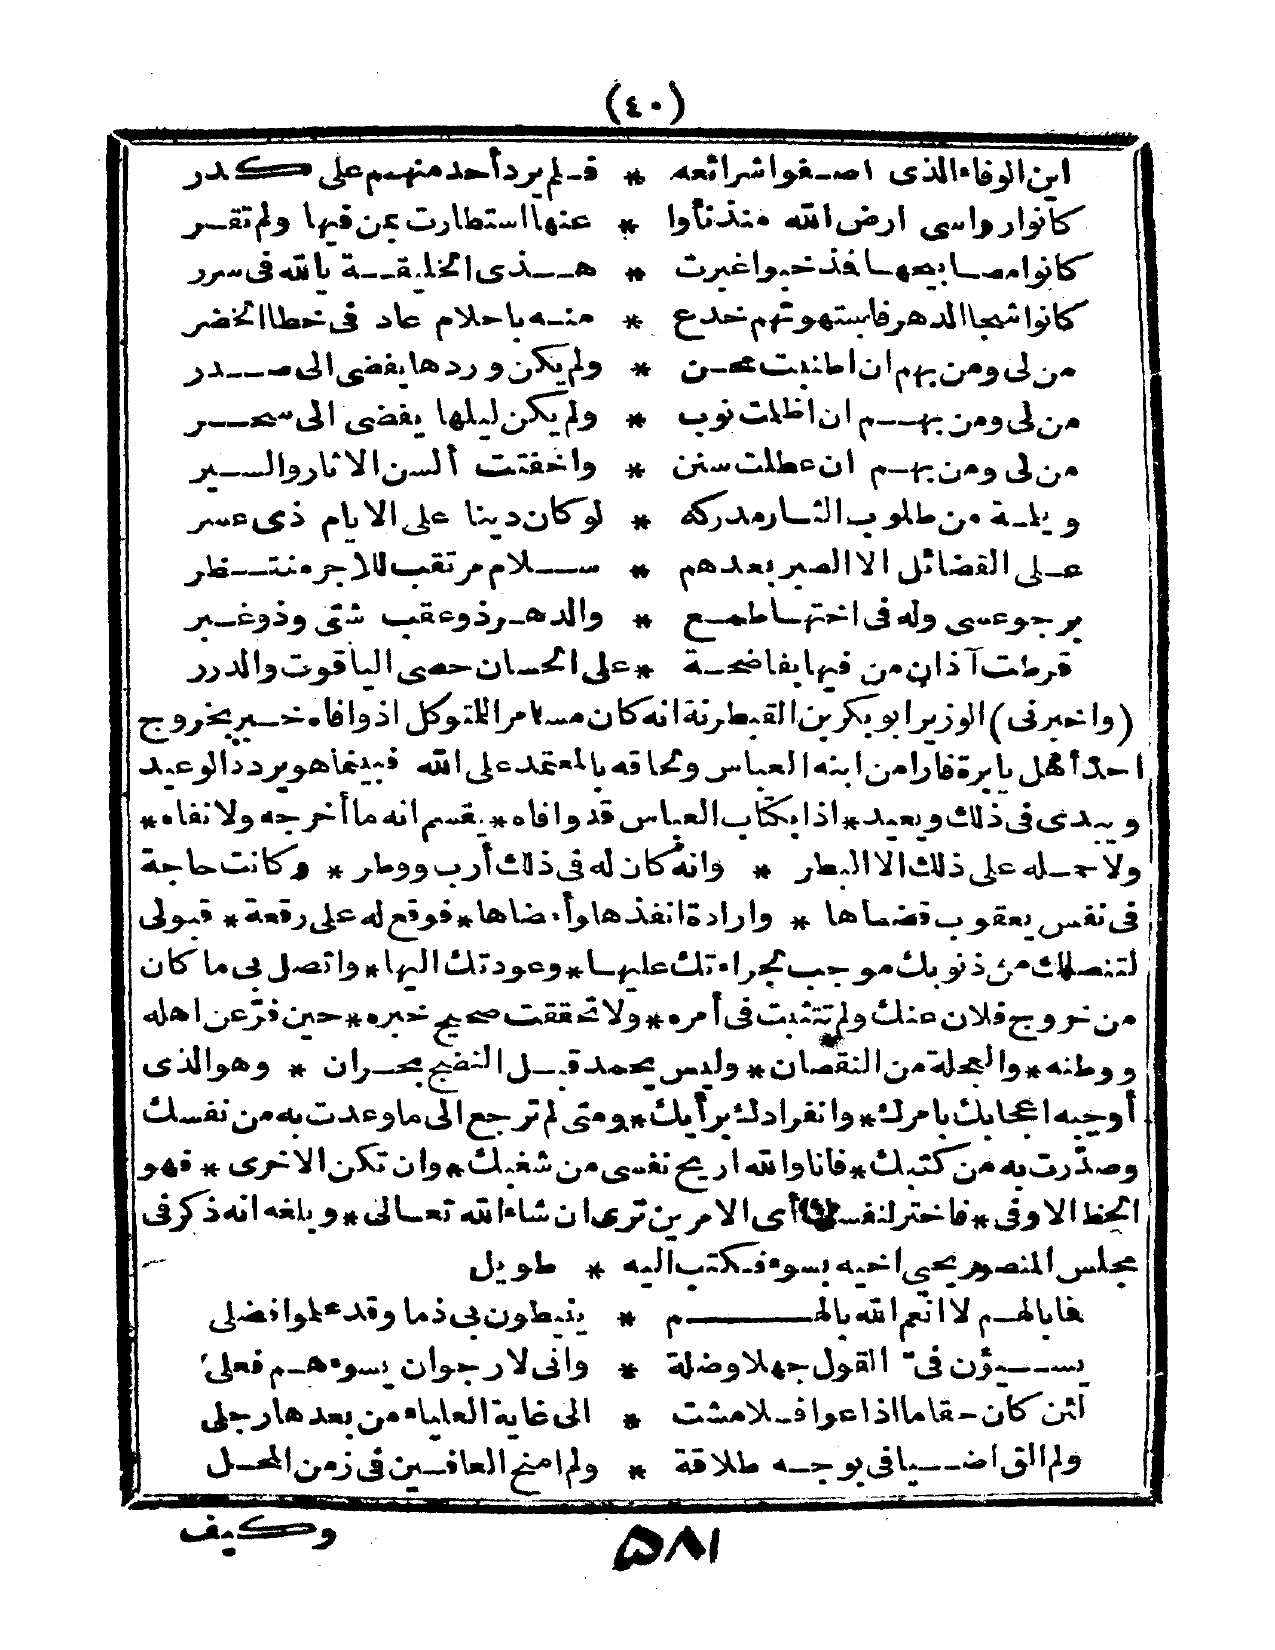 (٤٠)
اين الوفاء الذى اصفوا شرائعه * فلم يرد أحد منهم على كدر
كانوا رواسى ارض الله منذ نأوا * عنها استطارت بمن فيها ولم تقر
كانوا مصابيحها فمذ خبوا غبرت * هذى الخليقة يا لله فى سرر
كانوا شجا الدهر فاستهوتهم خدع * منه باحلام عاد فى خطا الخضر
من لى ومن بهم ان اطنبت محن * ولم يكن وردها يفضى الى صدر
من لى ومن بهم ان اظلمت نوب * ولم يكن ليلها يفضى الى سحر
من لى ومن بهم ان عطلت سنن * واخفتت ألسن الاثار والسير
ويلمة من طلوب الثار مدركه * لو كان دينا على الايام ذى عسر
على الفضائل الا الصبر بعدهم * سلام مرتقب للاجر منتظر
يرجو عسى وله فى اختها طمع * والدهر ذو عقب شتى وذو غير
قرطت آذان من فيها بفاضحة * على الحسان حصى الياقوت والدرر
(واخبرنى) الوزير ابو بكر بن القبطرنة انه كان مسامرا للمتوكل اذ وافاه خبر بخروج
احد أهل يابرة فارا من ابنه العباس ولحاقه بالمعتمد على الله فبينما هو يردد الوعيد
ويبدى فى ذلك ويعيد * اذا بكتاب العباس قد وافاه * يقسم انه ما أخرجه ولا نفاه *
ولا حمله على ذلك الا البطر * وانه كان له فى ذلك أرب ووطر * وكانت حاجة
فى نفس يعقوب قضاها * وارادة انفذها وأمضاها * فوقع له على رقعة * قبولى
لتنصلك من ذنوبك موجب لجراءتك عليها * وعودتك اليها * واتصل بى ما كان
من خروج فلان عنك ولم تتثبت فى أمره * ولا تحققت صحيح خبره * حين فرّ عن اهله
ووطنه * والعجلة من النقصان * وليس يحمد قبل النضج بحران * وهو الذى
أوجبه اعجابك بامرك * وانفرادك برأيك * ومتى لم ترجع الى ما وعدت به من نفسك
وصدّرت به من كتبك * فانا والله اريح نفسى من شغبك * وان تكن الاخرى * فهو
الحظ الاوفى * فاختر لنفسك أى الامرين ترى ان شاء الله تعالى * وبلغه انه ذكر فى
مجلس المنصور يحيى اخيه بسوء فكتب اليه * طويل
فما بالهم لا انعم الله بالهم * ينيطون بى ذما وقد علموا فضلى
يسيؤن فىّ القول جهلا وضلة * وانى لارجو ان يسوءهم فعلى
لئن كان حقا ما اذاعوا فلا مشت * الى غاية العلياء من بعدها رجلى
ولم الق اضيافى بوجه طلاقة * ولم امنح العافين فى زمن المحل
وكيف
۵۸۱